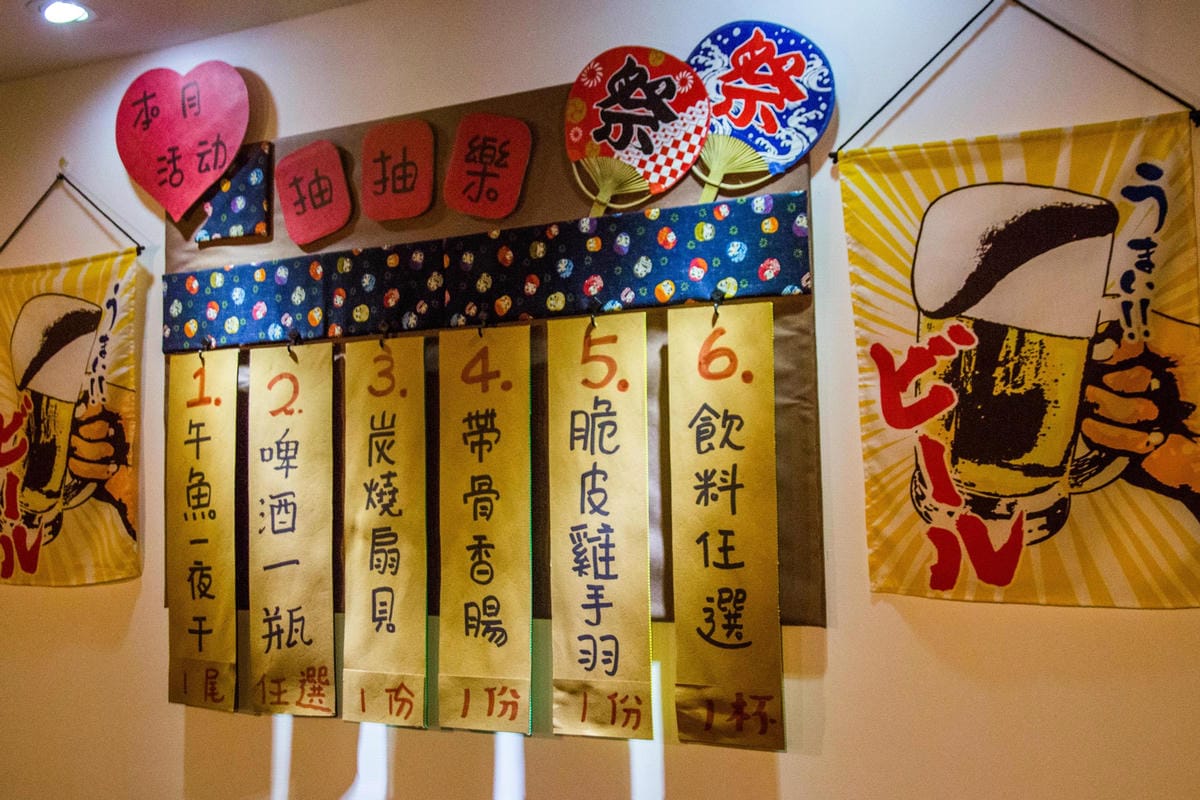 本月
活动
抽抽樂
祭
祭
1.
午魚一夜干
1尾
2.
啤酒一瓶
任選
3.
炭燒扇貝
1份
4.
帶骨香腸
1份
5.
脆皮雞手羽
1份
6.
飲料任選
1杯
うまい!!
ビール
うまい!!
ビール